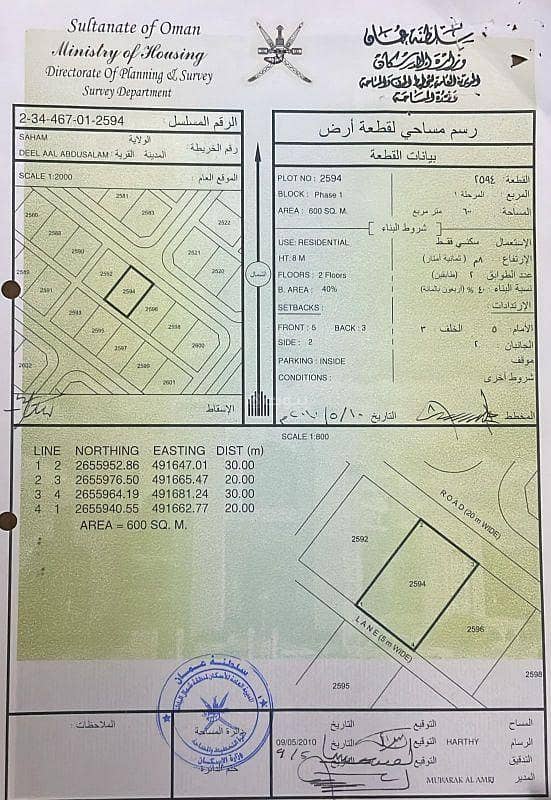 Sultanate of Oman
Ministry of Housing
Directorate Of Planning & Survey
Survey Department
سلطنة عمان
وزارة الإسكان
2-34-467-01-2594 الرقم المسلسل
SAHAM الولاية
DEEL AAL ABDUSALAM المدينة القرية
رقم الخريطة
SCALE 1:2000 الموقع العام
رسم مساحي لقطعة أرض
بيانات القطعة
PLOT NO : 2594 ٢٥٩٤ القطعة
BLOCK : Phase 1 المرحلة ١ المربع
AREA : 600 SQ. M. ٦٠٠ متر مربع المساحة
شروط البناء
USE: RESIDENTIAL سكني فقط الإستعمال
HT: 8 M ٨م (ثمانية أمتار) الإرتفاع
FLOORS : 2 Floors ٢ (طابقين) عدد الطوابق
B. AREA : 40% ٤٠ % (أربعون بالمائة) نسبة البناء
SETBACKS : الإرتدادات :
FRONT : 5 BACK : 3 ٣ الخلف ٥ الأمام
SIDE : 2 ٢ الجانبان
PARKING : INSIDE موقف
CONDITIONS : شروط أخرى
التاريخ المخطط
الإسقاط
الشمال
2581
2583
2522
2566
2588
2590
2592
2594
2596
2521
2520
2589
2591
2593
2595
2597
2598
2599
2600
2601
2602
SCALE 1:800
LINE NORTHING EASTING DIST (m)
1 2 2655952.86 491647.01 30.00
2 3 2655976.50 491665.47 20.00
3 4 2655964.19 491681.24 30.00
4 1 2655940.55 491662.77 20.00
AREA = 600 SQ. M.
ROAD (20 m WIDE)
2592
2594
2596
LANE (8 m WIDE)
2598
2595
سلطنة عمان
وزارة الإسكان
الملاحظات :
التاريخ التوقيع المساح
09/05/2010 التاريخ التوقيع HARTHY الرسام
التاريخ التوقيع التدقيق
MUBARAK AL AMRI المدير